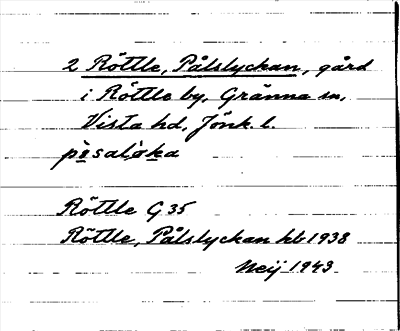 2 Röttle, Pålslyckan, gård
i Röttle by, Gränna sn,
Vista hd, Jönk. l.
Röttle G 35
Röttle, Pålslyckan hb 1938
Neij 1943